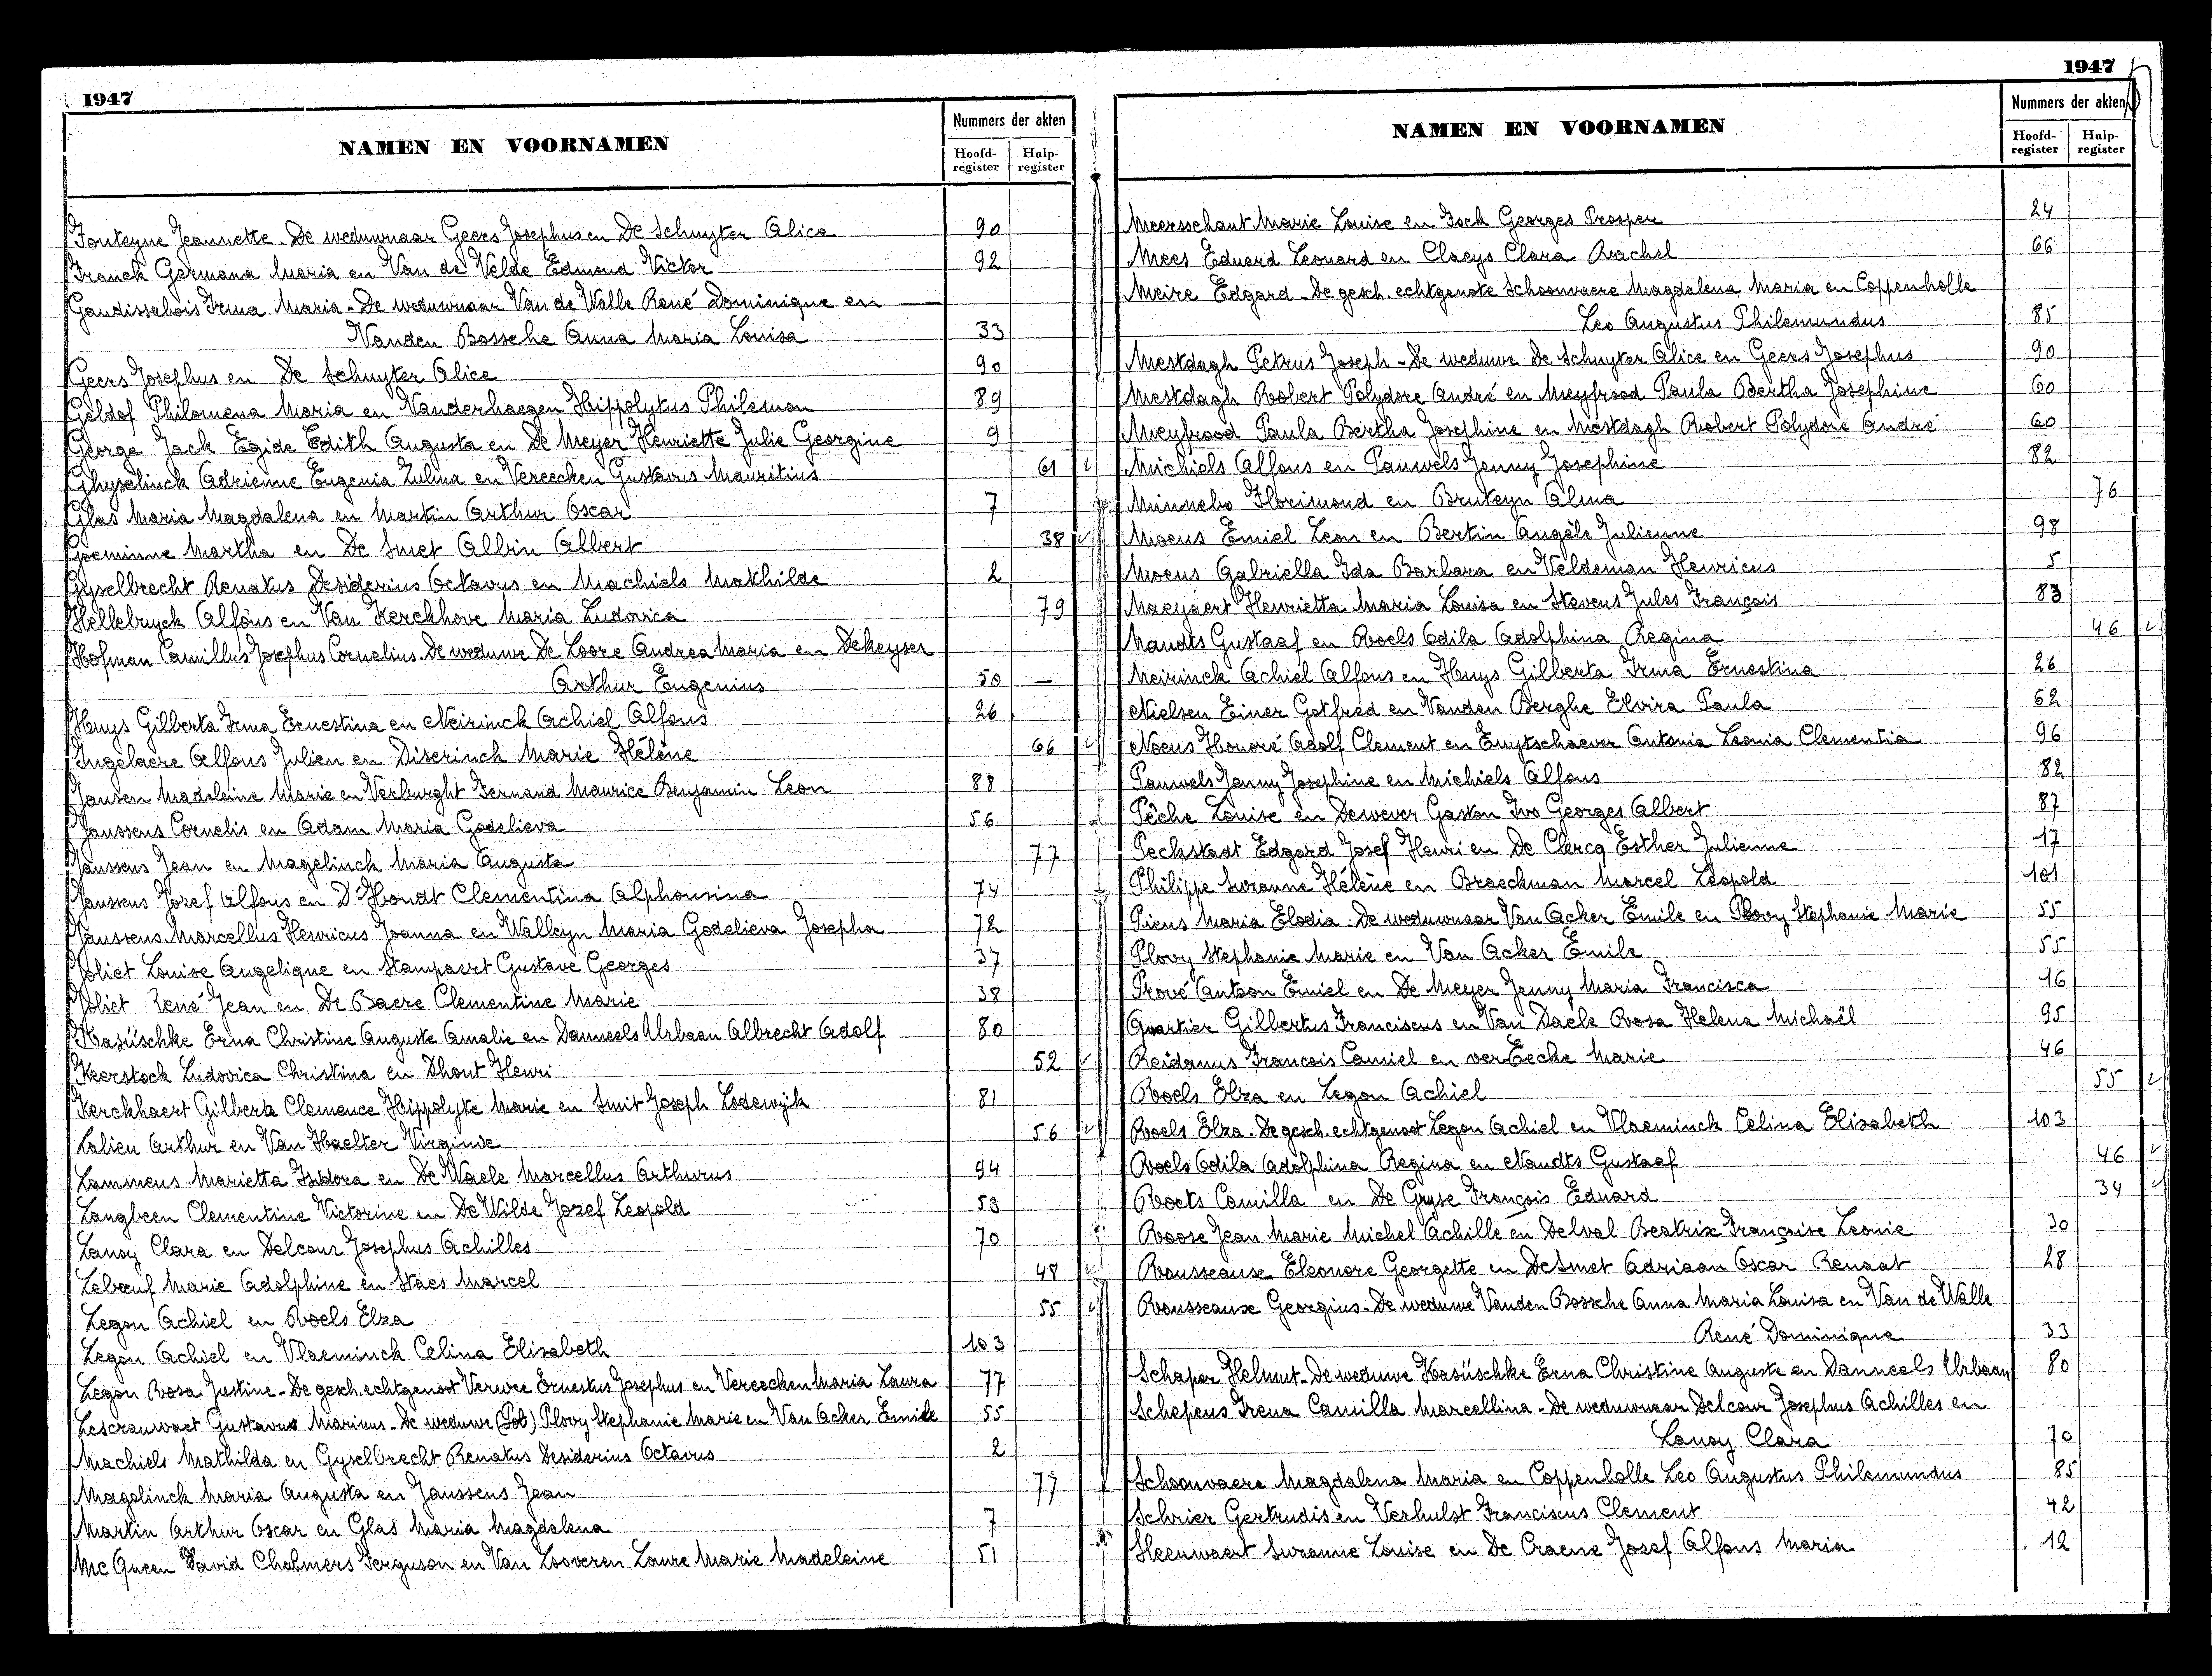 1947
NAMEN EN VOORNAMEN
Nummers der akten
Hoofd-register
Hulp-register
Fonteyne Jeannette. De weduwnaar Geers Josephus en De Schuyter Alice 90
Franck Germana Maria en Van de Velde Edmond Victor 92
Gaudissabois Irma Maria - De weduwnaar Van de Walle René Dominique en
Vanden Bossche Anna Maria Louisa 33
Geers Josephus en De Schuyter Alice 90
Geldof Philomena Maria en Vanderhaegen Hippolytus Philemon 89
George Jack Egide Edith Augusta en De Meyer Henriette Julie Georgine 9
Ghyselinck Adrienne Eugenia Zulma en Vereecken Gustavus Mauritius 61
Glas Maria Magdalena en Martin Arthur Oscar 7
Goeminne Martha en De Smet Albin Albert 38
Gyselbrecht Renatus Desiderius Octavus en Machiels Mathilde 2
Hellebuyck Alfons en Van Kerckhove Maria Ludovica 79
Hofman Camillus Josephus Cornelius. De weduwe De Loore Andrea Maria en Dekeyser
Arthur Eugenius 50 —
Huys Gilberta Irma Ernestina en Neirinck Achiel Alfons 26
Ingelaere Alfons Julien en Diserinck Marie Hélène 66
Jansen Madeleine Marie en Verburght Fernand Maurice Benjamin Leon 88
Janssens Cornelis en Adam Maria Godelieva 56
Janssens Jean en Magelinck Maria Augusta 77
Janssens Jozef Alfons en D'Hondt Clementina Alphonsina 74
Janssens Marcellus Henricus Joanna en Walleyn Maria Godelieva Josepha 72
Joliet Louise Angelique en Stampaert Gustave Georges 37
Joliet René Jean en De Baere Clementine Marie 38
Kasüschke Erna Christine Auguste Amalie en Danneels Urbaan Albrecht Adolf 80
Keerstock Ludovica Christina en Dhont Henri 52
Kerckhaert Gilberte Clemence Hippolyte Marie en Smit Joseph Lodewijk 81
Lalieu Arthur en Van Haelter Virginie 56
Lammens Marietta Isidora en De Waele Marcellus Arthurus 94
Langbeen Clementine Victorine en De Wilde Jozef Leopold 53
Lanoy Clara en Delcour Josephus Achilles 70
Lebœuf Marie Adolphine en Staes Marcel 48
Legon Achiel en Roels Elza 55
Legon Achiel en Vlaeminck Celina Elisabeth 103
Legon Rosa Justine - De gesch. echtgenoot Verwee Ernestus Josephus en Vereecken Maria Laura 77
Lescrauwaet Gustavus Marinus - De weduwe Plovy Stephanie Marie en Van Acker Emile 55
Machiels Mathilda en Gyselbrecht Renatus Desiderius Octavus 2
Magelinck Maria Augusta en Janssens Jean 77
Martin Arthur Oscar en Glas Maria Magdalena 7
Mc Queen David Chalmers Ferguson en Van Looveren Laure Marie Madeleine 51
1947
NAMEN EN VOORNAMEN
Nummers der akten
Hoofd-register
Hulp-register
Meersschaut Marie Louise en Fock Georges Prosper 24
Mees Eduard Leonard en Claeys Clara Rachel 66
Meire Edgard - De gesch. echtgenote Schoonvaere Magdalena Maria en Coppenholle
Leo Augustus Philemundus 85
Mestdagh Petrus Joseph - De weduwe De Schuyter Alice en Geers Josephus 90
Mestdagh Robert Polydore André en Meyfrood Paula Bertha Josephine 60
Meyfrood Paula Bertha Josephine en Mestdagh Robert Polydore André 60
Michiels Alfons en Pauwels Jenny Josephine 82
Minnebo Florimond en Bruteyn Alma 76
Moens Emiel Leon en Bertin Angèle Julienne 98
Moens Gabriella Ida Barbara en Veldeman Henricus 5
Naeyaert Henrietta Maria Louisa en Stevens Jules François 83
Naudts Gustaaf en Roels Odila Adolphina Regina 46
Neirinck Achiel Alfons en Huys Gilberta Irma Ernestina 26
Nielsen Einer Gotfred en Vanden Berghe Elvira Paula 62
Noens Honoré Adolf Clement en Tuytschaever Antonia Leonia Clementia 96
Pauwels Jenny Josephine en Michiels Alfons 82
Pêche Louise en Dewever Gaston Ivo Georges Albert 87
Peckstadt Edgard Josef Henri en De Clercq Esther Julienne 17
Philippe Suzanne Hélène en Braeckman Marcel Léopold 101
Piens Maria Elodia. De weduwnaar Van Acker Emile en Plovy Stephanie Marie 55
Plovy Stephanie Marie en Van Acker Emile 55
Prové Antoon Emiel en De Meyer Jenny Maria Francisca 16
Quartier Gilbertus Franciscus en Van Daele Rosa Helena Michaël 95
Reidanus Francois Camiel en verEecke Marie 46
Roels Elza en Legon Achiel 55
Roels Elza. De gesch. echtgenoot Legon Achiel en Vlaeminck Celina Elisabeth 103
Roels Odila Adolphina Regina en Naudts Gustaaf 46
Roets Camilla en De Gryse François Eduard 34
Roose Jean Marie Michel Achille en Delval Beatrix Françoise Leonie 30
Rousseaux Eleonore Georgette en DeSmet Adriaan Oscar Renaat 28
Rousseaux Georgius. De weduwe Vanden Bossche Anna Maria Louisa en Van de Walle
René Dominique 33
Schaper Helmut. De weduwe Kasüschke Erna Christine Auguste en Danneels Urbaan 80
Schepens Irena Camilla Marcellina - De weduwnaar Delcour Josephus Achilles en
Lanoy Clara 70
Schoonvaere Magdalena Maria en Coppenholle Leo Augustus Philemundus 85
Schrier Gertrudis en Verhulst Franciscus Clement 42
Sleenwaert Suzanne Louise en De Craene Jozef Alfons Maria 12